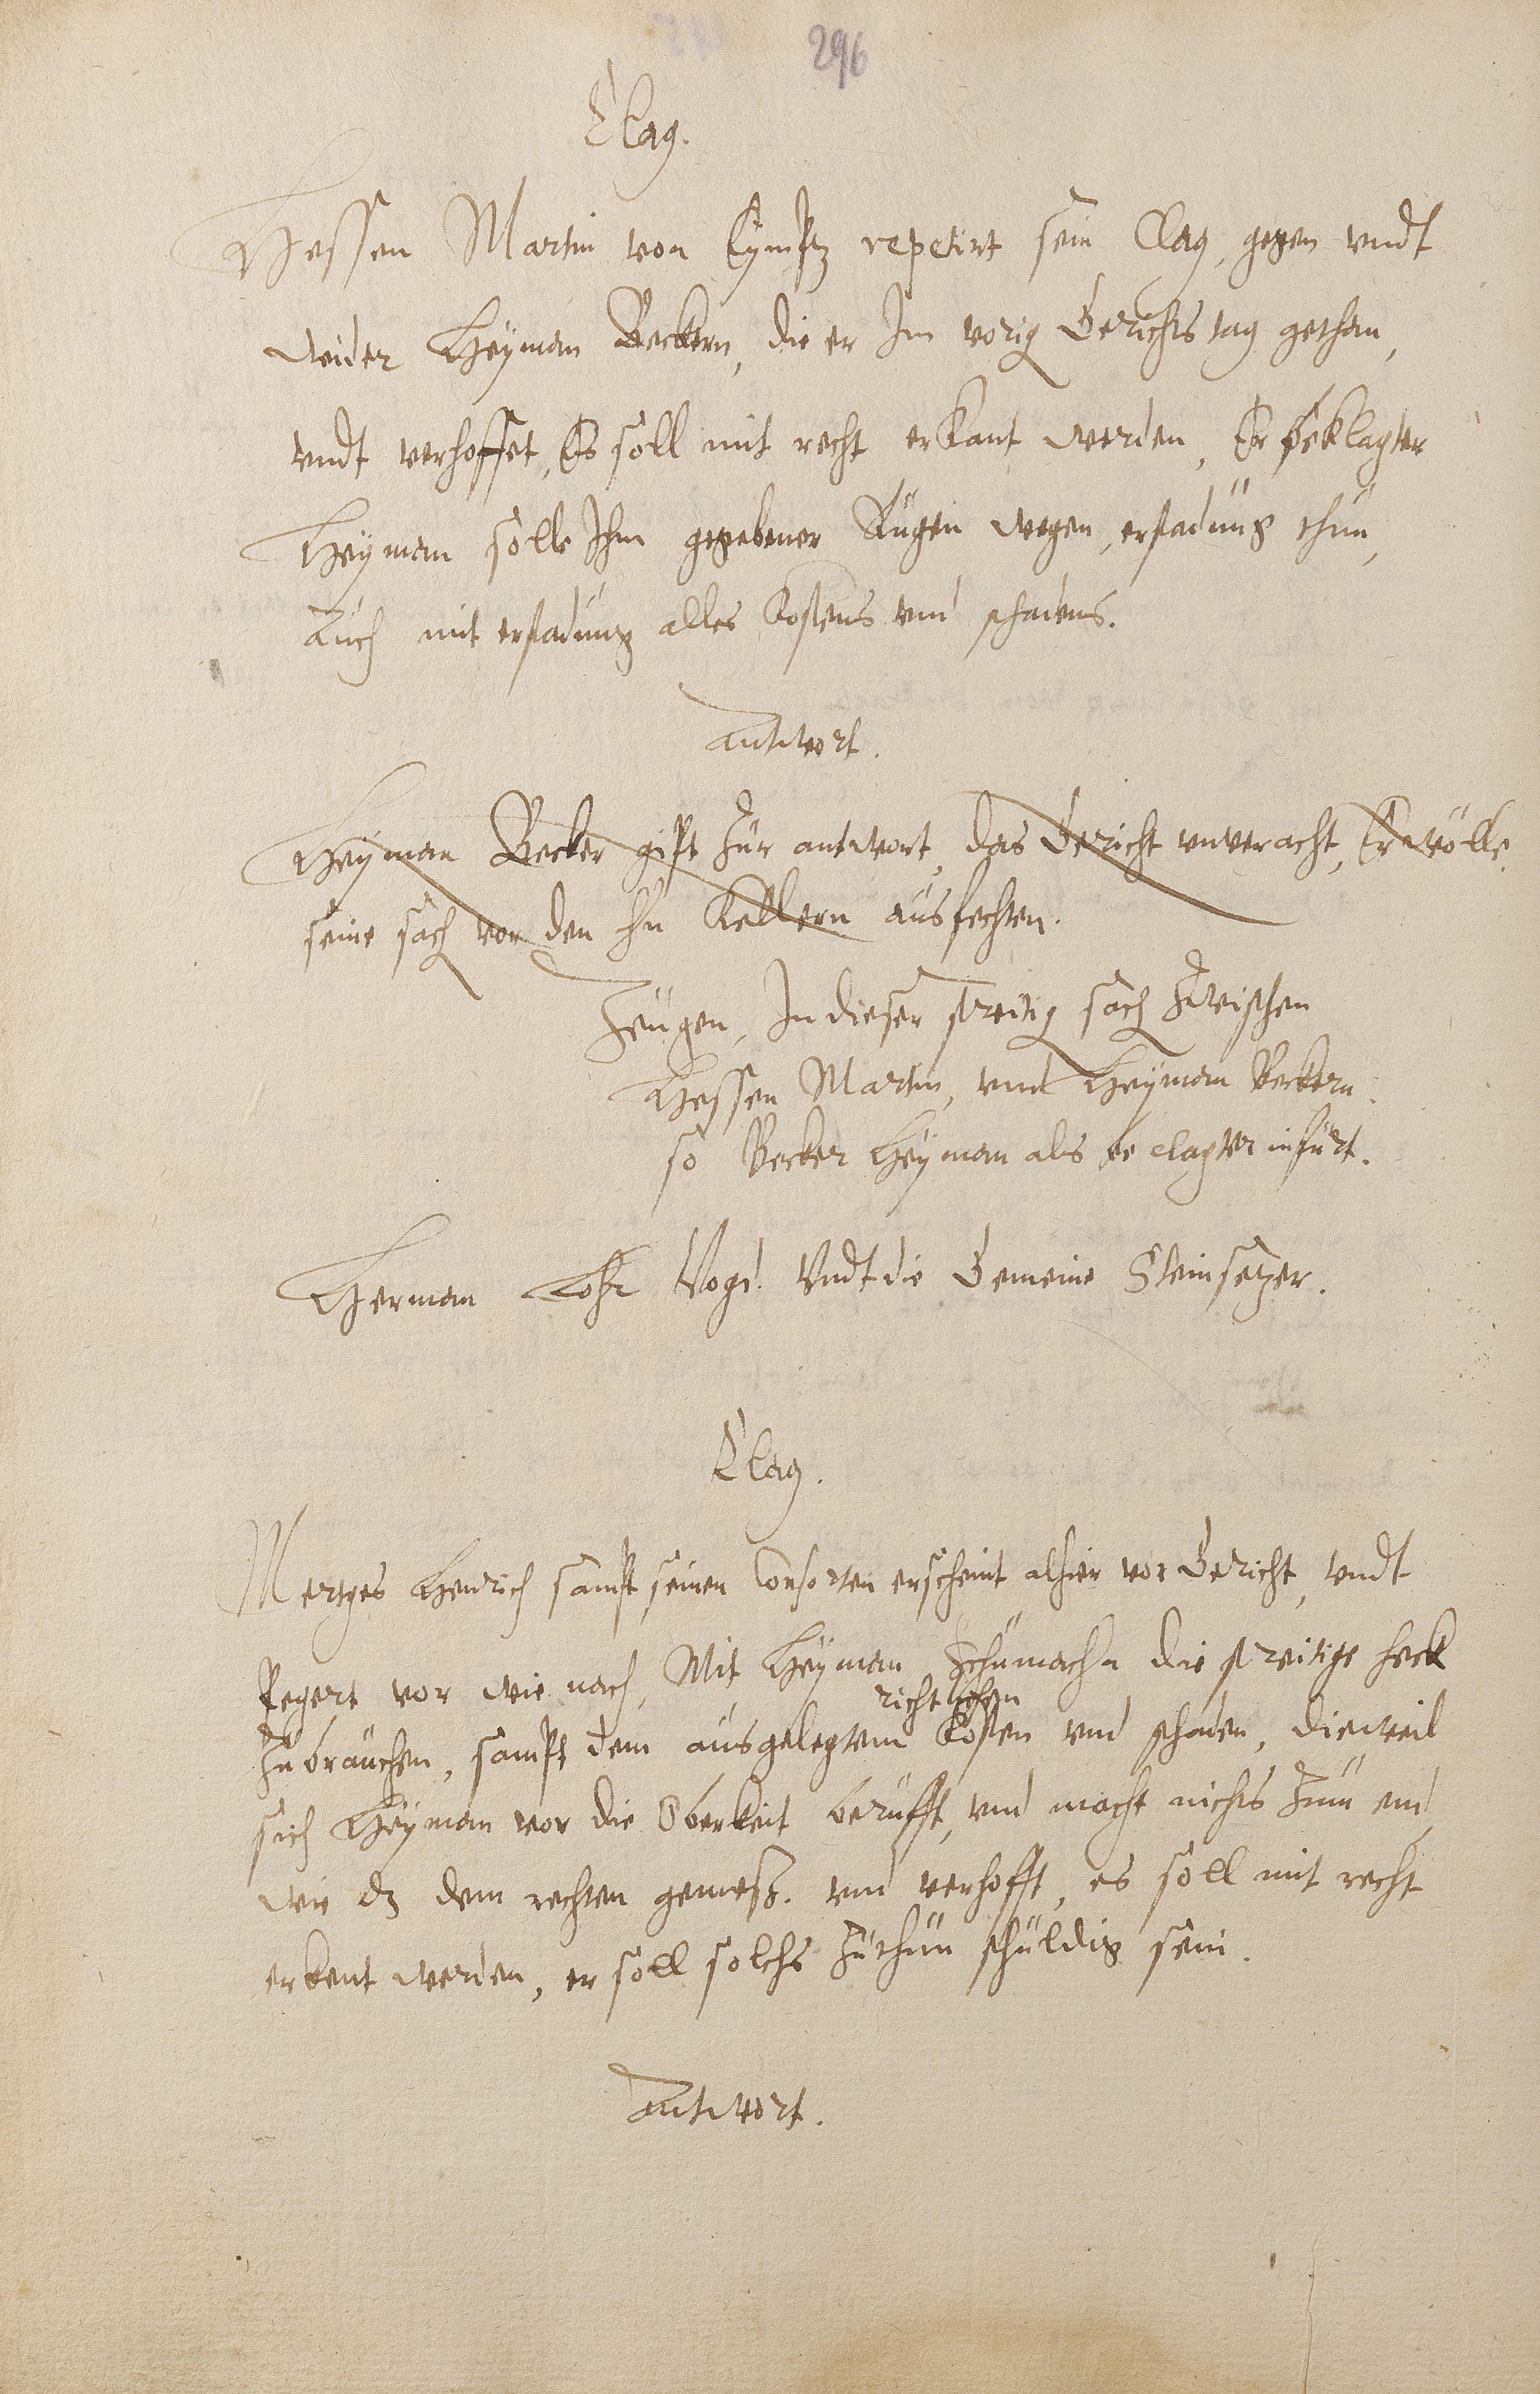 296
Clag.
Hessen Martin von repetirt sein Clag, gegen vndt
wider Heÿman Beckern, die er Im vorig Gerichts tag gethan,
vndt verhoffet, Es soll mit recht erkant werden, Er beklagter
Heÿman solle Ihm gegebener Rügen wegen, erstadung thun,
Auch mit erstadung alles kostens vnd schadens.
Antwort.
Heÿman Becker gift zur antwort, das Gericht vnveracht, Er wölle
seine sach vor den hn Kellern ausfechten.
Zeugen, In dieser streitig sach zwischen
Hessen Martin, vnd Heÿman Beckern.
so Becker Heÿman als beclagter infürt.
Herman Vogd. Vndt die Gemeine Steinsetzer.
Clag.
Mertges Henrich sampt seinen Consorten erscheint alhier vor Gericht, vndt
begert vor wie nach, Mit Heÿman Schumachn die streitige heck
richtlichen
zubrauchen, sampt dem ausgelegtem kosten vnd schaden, dieweil
sich Heÿman vor die Oberkeit berufft, vnd macht nichts zum end,
wie dz dem rechten gemeß. vnd verhofft, es soll mit recht
erkent werden, er soll solchs zuthun schuldig sein.
Antwort.